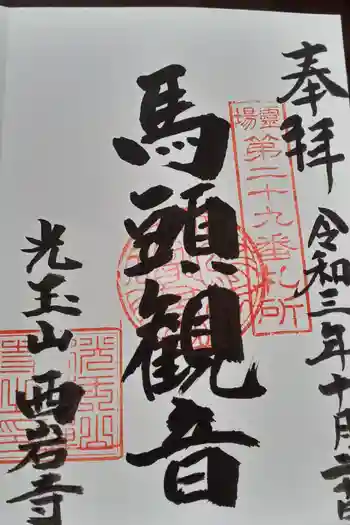 奉拝
令和三年十月二日
霊場
第二十九番札所
馬頭観音
光玉山
西岩寺